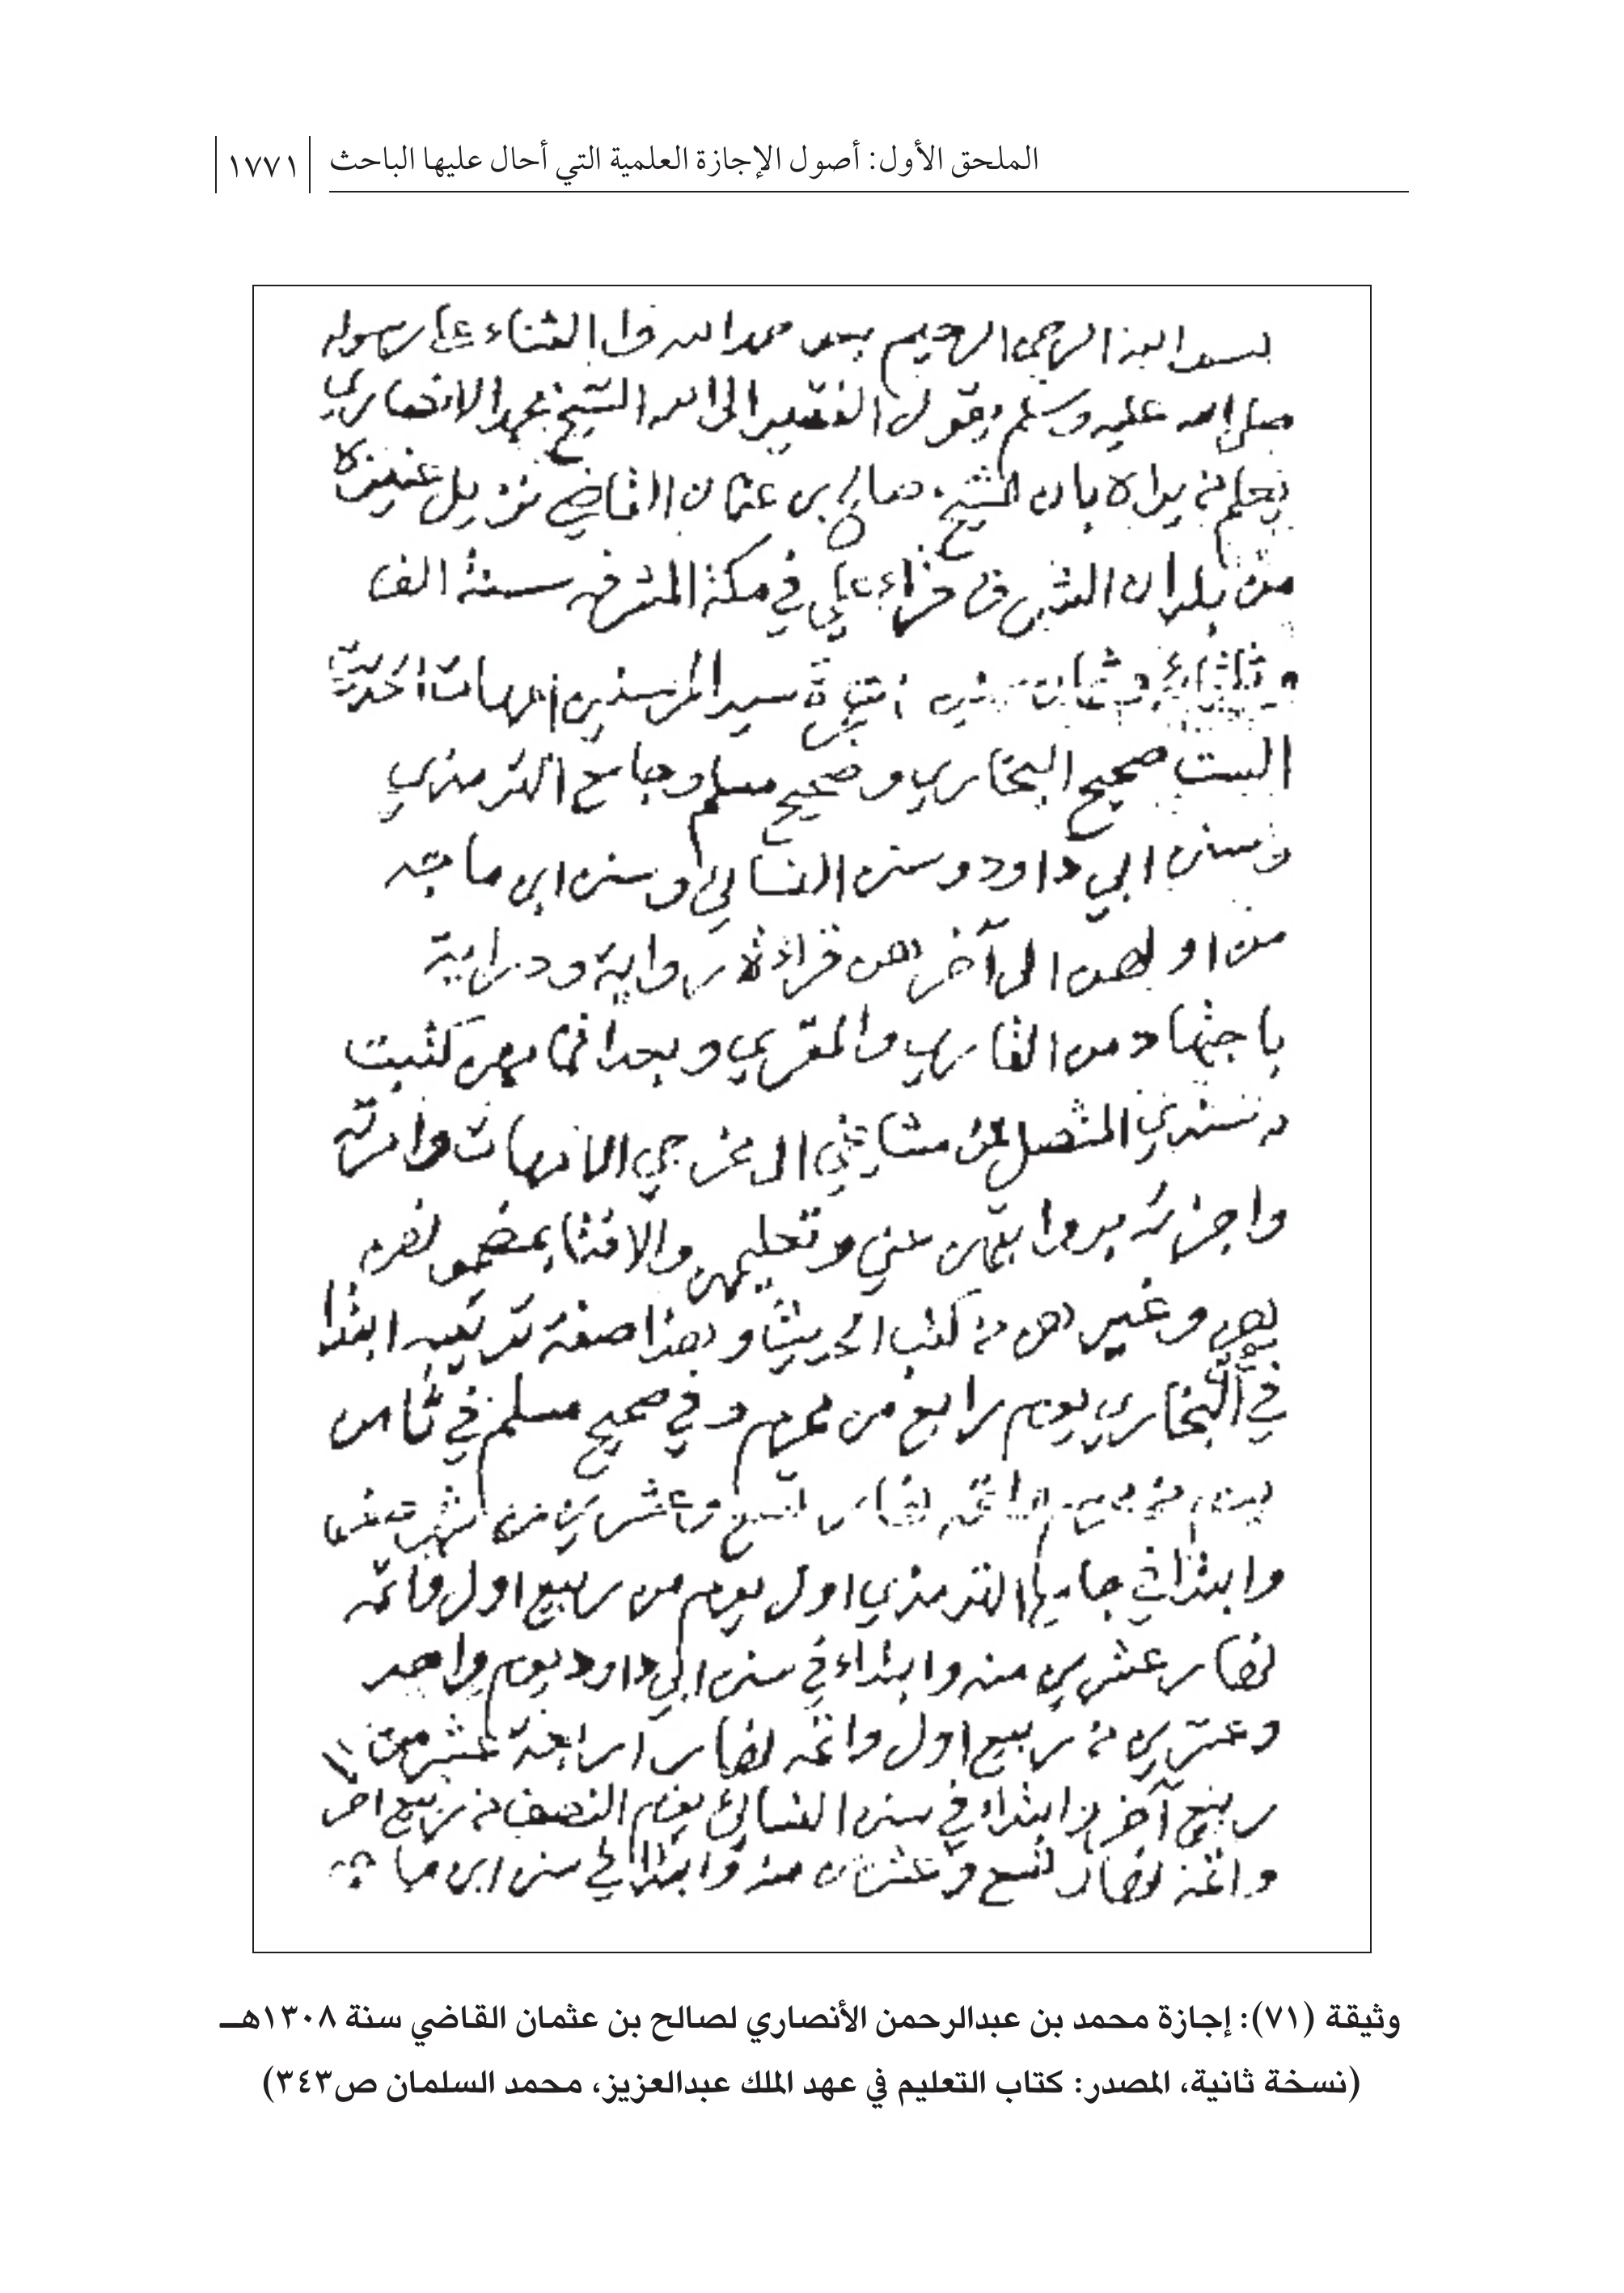 الملحق الأول: أصول الإجازة العلمية التي أحال عليها الباحث ١٧٧١
بسم الله الرحمن الرحيم بعد حمد الله والثناء على رسوله
صلى الله عليه وسلم يقول الفقير الى الله الشيخ محمد الانصاري
يعلم من يراه بان الشيخ صالح بن عثمان القاضي نزيل عنيزة
من بلدان الشرق قراء علي في مكة المشرفه سنة الف
وثلثمائة وثمان سيد المرسلين امهات الحديث
الست صحيح البخاري وصحيح مسلم وجامع الترمذي
وسنن ابي داود وسنن النسائي وسنن ابن ماجه
من اولهن الى آخرهن قراءة رواية ودراية
باجتهاد من القاري والمقري وبعد اتمامهن كتبت
له سندي المتصل من مشايخي الى مخرجي الامهات وامرته
واجزته بروايتهن عني وتعليمهن والافتا بمضمونهن
بهن وغيرهن من كتب الحديث وهذا صفة ترتيبه ابتدا
في البخاري يوم رابع من محرم وفي صحيح مسلم في ثامن
يوم من محرم واتمه نهار تسع وعشرين من شهر صفر
وابتدا في جامع الترمذي اول يوم من ربيع اول واتمه
نهار عشرين منه وابتداء في سنن ابي داود يوم واحد
وعشرين من ربيع اول واتمه نهار رابعة عشر من
ربيع آخر وابتداء في سنن النسائي يوم النصف من ربيع اخر
واتمه نهار تسع وعشرين منه وابتدا في سنن ابن ماجه
وثيقة (٧١): إجازة محمد بن عبدالرحمن الأنصاري لصالح بن عثمان القاضي سنة ١٣٠٨هـ
(نسخة ثانية، المصدر: كتاب التعليم في عهد الملك عبدالعزيز، محمد السلمان ص٣٤٣)